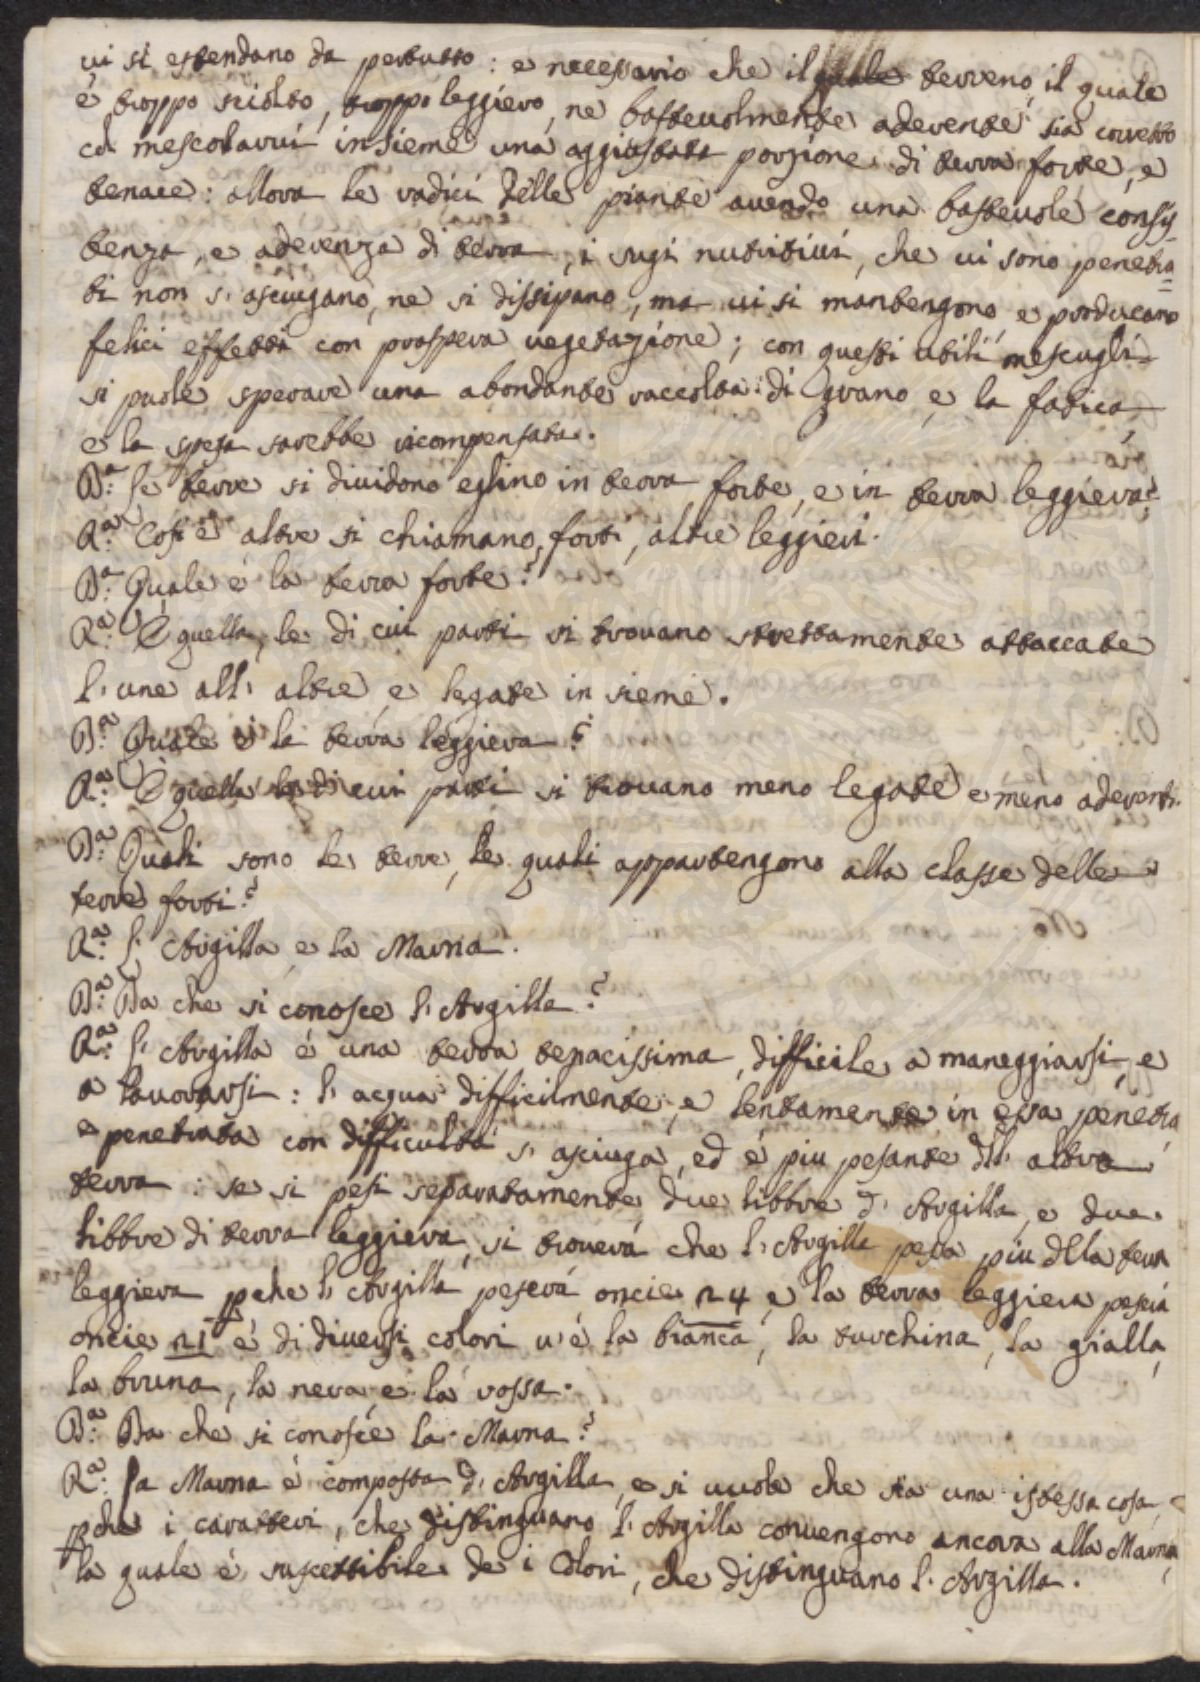 vi si estendano da pertutto: e necessario che il quale terreno, il quale
è troppo sciolto, troppo leggiero, ne bastevolmente aderente sia corretto
col mescolarvi insieme una aggiustata porzione di terra forte, e
tenace: allora le radici delle piante avendo una bastevole consis-
tenza, e aderenza di terra, i sugi nutritivi, che vi sono penetra=
ti non s'asciugano, ne si dissipano, ma vi si mantengono e producano
felici effetti con prospera vegetazione; con questi utili mescugli
si puole sperare una abondante raccolta di Grano, e la fatica,
e la spesa sarebbe ricompensata.
Da: Le terre si dividono eglino in terra forte, e in terra leggiera?
Ra: Cosi è altre si chiamano forti, altre leggieri.
Da: Quale è la terra forte?
Ra: È quella, le di cui parti si trovano strettamente attaccate
l'une all'altre, e legate insieme.
Da: Quale è la terra leggiera?
Ra: È quella le di cui parti si trovano meno legate e meno aderenti.
Da: Quali sono le terre, le quali appartengono alla classe delle
terre forti?
Ra: L'Argilla, e la Marna.
Da: Da che si conosce l'Argilla?
Ra: L'Argilla è una terra tenacissima, difficile a maneggiarsi, e
a lavorarsi: l'acqua difficilmente, e lentamente in essa penetra,
e penetrata con difficultà s'asciuga, ed è piu pesante dll'altra
terra: se si pesi separatamente due libbre d'Argilla, e due
libbre di terra leggiera, si troverà che l'Argilla pesa più dlla terra
leggiera pche l'Argilla peserà oncie 24 e la terra leggiera peserà
oncie 21 è di diversi colori v'è la bianca, la turchina, la gialla,
la bruna, la nera, e la rossa.
Da: Da che si conosce la Marna?
Ra: La Marna è composta d'Argilla, e si vuole che sia una istessa cosa,
pche i caratteri, che distinguano l'Argilla convengono ancora alla Marna,
la quale è suscettibile de i Colori, che distinguano l'Argilla.